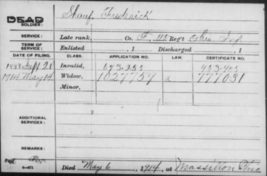 DEAD
SOLDIER: Stauf, Frederick
SERVICE: Late rank, Co. F, 115 Reg't Ohio Inf
TERM OF SERVICE: Enlisted , 1 Discharged , 1
DATE OF FILING. CLASS. APPLICATION NO. LAW. CERTIFICATE NO.
Invalid,
1914 May 14 Widow, 1027757 777031
Minor,
ADDITIONAL SERVICES:
REMARKS:
Died May 6, 1914, at Massillon Ohio